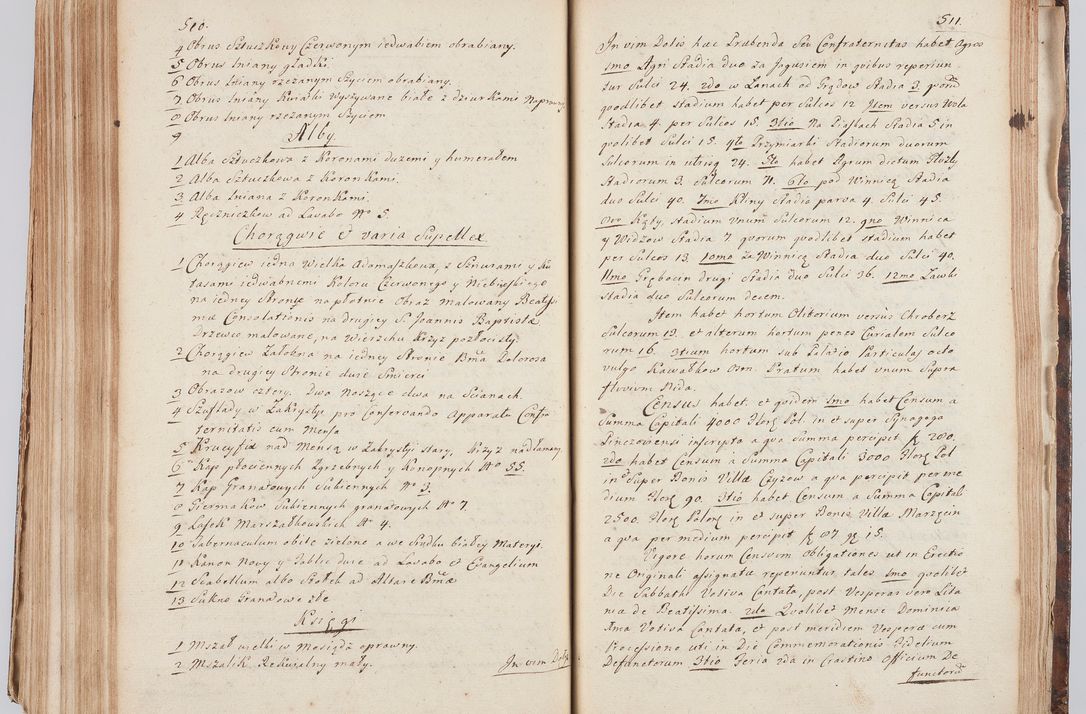 510.
4 Obrus Sztuczkowy Czerwonym iedwabiem obrabiany.
5 Obrus lniany gładki
6 Obrus lniany rzezanym Szyciem obrabiany.
7 Obrus lniany Kwiatki wyszywane białe z dziurkami
8 Obrus lniany rzezanym Szyciem
9
Alby
1 Alba Sztuczkowa z Koronami duzemi y humerałem
2 Alba Sztuczkowa z Koronkami.
3 Alba lniana z Koronkami.
4 Ręczniczkow ad Lavabo No 5.
Chorągwie & varia Supellex
1 Chorągiew iedna Wielka Adamaszkowa, z Sznurami y Ku
tasami iedwabnemi Koloru Czerwonego y Niebieskiego
na iedney Stronye na płotnie Obraz Malowany Beatis
mæ Consolationis na drugiey S. Joannis Baptistæ
Drzewce malowane, na Wierzchu Krzyz pozłocisty
2 Chorągiew Załobna na iedney Stronie Bmæ Dolorosa
na drugiey Stronie dusze Smierci
3 Obrazow cztery. Dwa Noszące dwa na Scianach.
4 Szuflady w Zakrystyi pro Conservando Apparatu Confra
ternitatis cum Mensa
5 Krucyfix nad Mensą w Zakrystyi stary, Krzyz nadłamany
6 Kap płociennych Zgrzebnych y Konopnych No 55.
7 Kap Granatowych Sukiennych No 3.
8 Giermakow Sukiennych granatowych No 7.
9 Lasek Marszałkowskich No 4.
10 Tabernaculum obite zielone a we srodku białey Materyi.
11 Kanon Nowy y Tablic dwie ad Lavabo & Evangelium
12 Scabellum albo Stołek ad Altare Bmæ
13 Sukno Granatowe złe
Ksiegi
1 Mszał wielki w Mosiądz oprawny.
2 Mszalik Rekwialny mały.
In vim Dotis
511.
In vim Dotis hæc Præbenda Seu Confraternitas habet Agros
1mo Agri Stadia duo za Jegusiem in quibus reperiun
tur Sulci 24. 2do w Lanach od Grędow Stadia 3. quorum
quodlibet Stadium habet per Sulcos 12 Item versus Wola
Stadia 4. per Sulcos 15. 3tio Na Piaskach Stadia 5 in
quolibet Sulci 15. 4to Przymiarki Stadiorum duorum
Sulcorum in utroq 24. 5to habet Agrum dictum
Stadiorum 3. Sulcorum 11. 6to pod Winnicą Stadia
duo Sulci 40. 7mo Kliny Stadia parva 4. Sulci 45.
8vo Kąty, Stadium Vnum Sulcorum 12. 9no Winnica
y Widzow Stadia 7 quorum quodlibet Stadium habet
per Sulcos 13. 10mo za Winnicą Stadia duo Sulci 40.
11mo Grębocin drugi Stadia duo Sulci 36. 12mo Ławki
Stadia duo Sulcorum decem.
Item habet hortum Olitorium versus Chroberz
Sulcorum 13. et alterum hortum penes Curialem Sulco
rum 16. 3tium hortum sub Palatio Particulas octo
vulgo Kawałkow Osm. Pratum habet vnum Supra
fluvium Nida.
Census habet. et quidem 1mo habet Censum a
Summa Capitali 4000 Flor Pol. in et super Synagoga
Pinczoviensi inscripto a qua Summa percipit f. 280.
2do habet Censum a Summa Capitali 3000 Flor Pol
in & Super Bonis Villæ Czyzow a qua percipit per me
dium Flor 90. 3tio habet Censum a Summa Capitali
2500. Flor Polon in et super Bonis Villæ Marzęcin
a qua per medium percipit f. 87 gr. 15.
Vigore horum Censuum Obligationes ut in Erectio
ne Originali assignatæ reperiuntur, tales 1mo quolibet
Die Sabbathi Votiva Cantata, post Vesperas vero Lita
niæ de Beatissima. 2do Quolibet Mense Dominica
1ma Votiva Cantata, & post meridiem Vesperæ cum
Processione uti in Die Commemorationis Fidelium
Defunctorum 3tio Feria 2da in Crastino Officium De
functorum